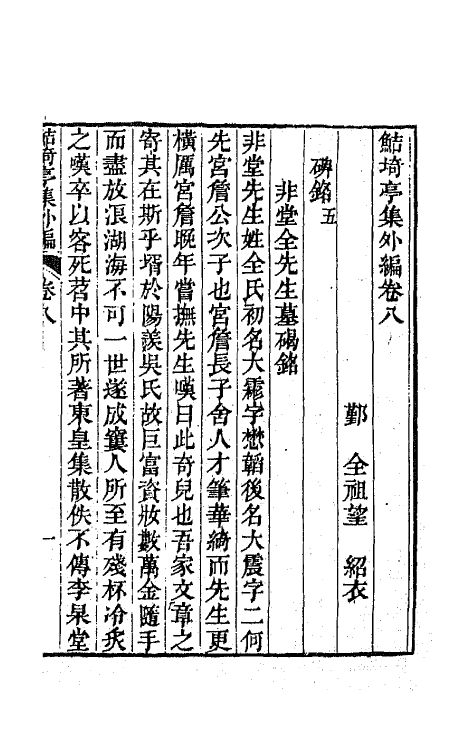 鮚埼亭集外編卷八
鄞 全祖望 紹衣
碑銘五
非堂全先生墓碣銘
非堂先生姓全氏初名大霦字懋韜後名大震字二何
先宮詹公次子也宮詹長子舍人才筆華綺而先生更
橫厲宮詹晚年嘗撫先生嘆曰此奇兒也吾家文章之
寄其在斯乎壻於陽羨吳氏故巨富資妝數萬金隨手
而盡放浪湖海不可一世遂成窶人所至有殘杯冷炙
之嘆卒以客死苕中其所著東皇集散佚不傳李杲堂
鮚埼亭集外編 卷八 一